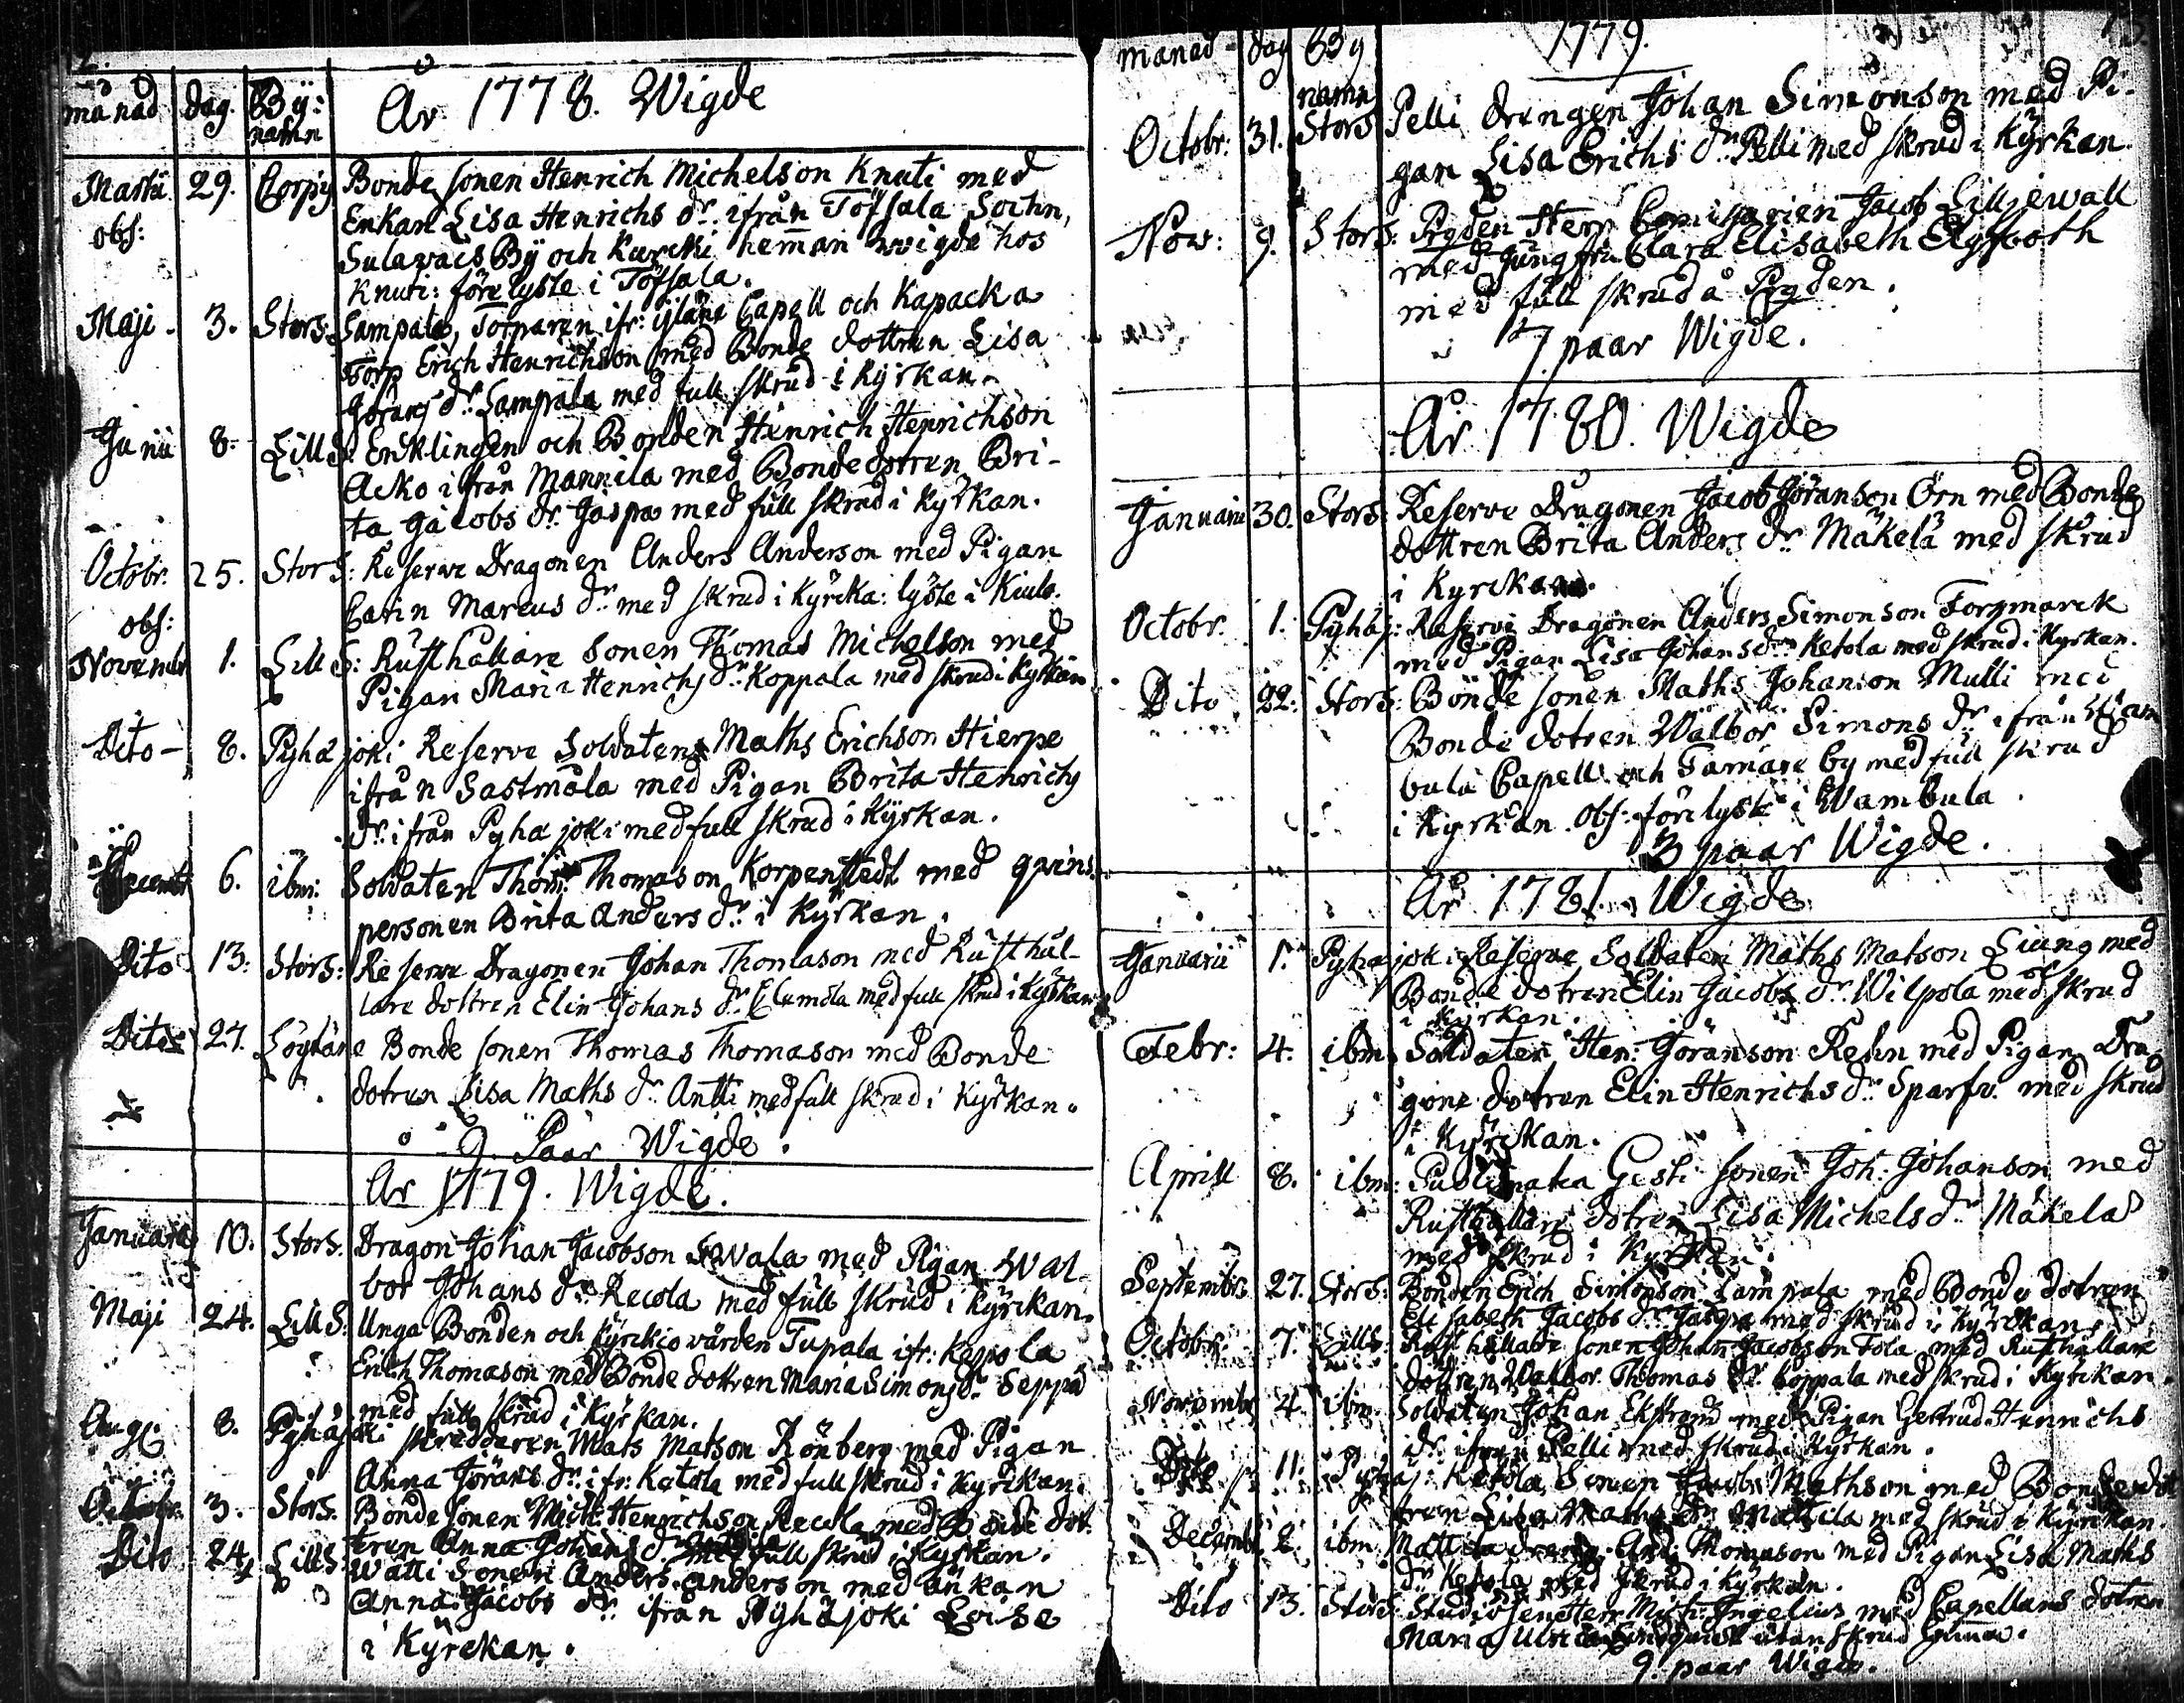 2.
månad dag. Bÿ: namn
År 1778. Wigde
Martii 29. Corpÿ Bonde sonen Henrich Michelson Knuti med
obs: Enkan Lisa Henrichs dr. ifrån Töfsala Sochn,
Sulavais Bÿ och Kurcki hemman wigde hos
Knuti: förelyste i Töfsala.
Maji 3. Stors. Sampala, Torparen ifr: ijläne Capell och Kapacka
Torp Erich Henrichson med Bonde dottren Lisa
Görans dr. Sampala med full skrud i Kÿrkan.
Junii 8. Lill S: Encklingen och Bonden Henrich Henrichson
Acko ifrån Mannila med Bondedotren Bri-
ta Jacobs dr. Jaspa med full skrud i Kÿrkan.
Octobr. 25. Stor S: Reserve Dragonen Anders Anderson med Pigan
obs: Carin Marcus dr. med skrud i Kÿrcka: lÿste i Kiulo.
Novembr 1. Lill S: Rusthållare sonen Thomas Michelson med
Pigan Maria Henrichs dr. Koppala med skrud i Kÿrkan
Dito - 8. Pÿhäjoki Reserve Soldaten Maths Erichson Hierpe
ifrån Sastmåla med Pigan Brita Henrichs
dr. ifrån Pyhäjoki med full skrud i Kÿrkan.
Decembr 6. ibm: Soldaten Thom: Thomason Korpenstedt med qvins
personen Brita Anders dr. i Kÿrkan.
Dito 13. Stors: Reserve Dragonen Johan Thomason med Rusthål-
lare dottren Elin Johans dr. med full skrud i Kÿrkan
Dito 27. Löÿtäne Bonde sonen Thomas Thomason med Bonde
dotren Lisa Maths dr. Antti med full skrud i Kÿrkan.
9. Paar Wigde.
År 1779. Wigde.
Januarii 10. Stors. Dragon Johan Jacobson Sevala med Pigan Wal-
bor Johans dr. Recola med full skrud i Kÿrckan.
Maji 24. Lill S: Unga Bonden och Kÿrckiovärden Tupala ifr: Kepola
Erich Thomason med Bonde dottren Maria Simons dr. Seppä
med full skrud i Kÿrkan.
Aug: 8. Pyhäjoki skreddaren Mats Matson Rönberg med Pigan
Anna Jörans dr. ifr: Ketola med full skrud i Kÿrckan.
Octobr. 3. Stors. Bonde sonen Mich: Henrichson Recola med Bonde dot-
tren Anna Johans dr. med full skrud i Kÿrkan.
Dito 24. Lill S: Watti Sonen Anders Anderson med änkan
Anna Jacobs dr. ifrån Pÿhäjoki Leise
i Kÿrckan.
månad dag Bÿ namn
1779.
Octobr: 31. Stors Pelli drengen Johan Simonson med Pi-
gan Lisa Erichs dr. Pelli med skrud i Kÿrkan.
Nov: 9. Stors: Pÿden Herr Comissarien Jacob Lilljewall
med Jungfru Clara Elisabeth Elgfooth
med full skrud å Pÿden.
7. paar Wigde.
År 1780. Wigde
Januarii 30. Stors: Reserve Dragonen Jacob Jöranson Örn med Bonde
dottren Brita Anders dr. Mäkelä med skrud
i Kyrckan.
Octobr. 1. Pyhäj: Reserve Dragonen Anders Simonson Forsmarck
med Pigan Lisa Johans dr. Ketola med skrud i Kyrkan.
Dito 22. Stors: Bonde sonen Maths Johanson Mulli med
Bonde dotren Walbor Simons dr. ifrån Wam
bula Capell och Tamare by med full skrud
i Kyrkan. obs: förelyste i Wambula.
3 paar Wigde.
År 1781. Wigde
Januarii 1. Pyhäjoki Reserve Soldaten Maths Matson Liung med
Bonde dotren Elin Jacobs dr. Wilpola med skrud
i Kÿrkan.
Febr: 4. ibm. Soldaten Hen: Göranson Rehn med Pigan Dra
gone dotren Elin Henrichs dr. Sparfv. med skrud
i Kÿrckan.
Aprill 8. ibm: Gesti sonen Joh: Johanson med
Rusthållare dotren Lisa Michels dr. Mäkelä
med skrud i Kÿrkan.
Septembr. 27. Stors: Bonden Erich Simonson Sampala med Bonde dotren
Elisabeth Jacobs dr. Jaspa med skrud i Kÿrckan.
Octobr. 7. Lill S: Rusthållare sonen Johan Jacobson Tola med Rusthållare
dottren Walbor Thomas dr. Coppala med skrud i Kÿrckan.
Novembr. 4. ibm. Soldaten Johan Ekström med Pigan Gertrud Henrichs
dr. ifrån Pelli med skrud i Kyrkan.
Dito 11. Pyhäj: Ketola Sonen Jacob Mathson med Bonde do
tren Lisa Maths dr. Mattila med skrud i Kÿrckan
Decembr. 2. ibm. Mattila dreng And: Thomason med Pigan Lisa Maths
dr. Ketola med skrud i Kÿrkan.
Dito 13. Stors: Studiosen Herr Mich: Ingelius med Capellans dotren
Maria Ulrica Lindquist utan skrud hemma.
9. paar Wigde.